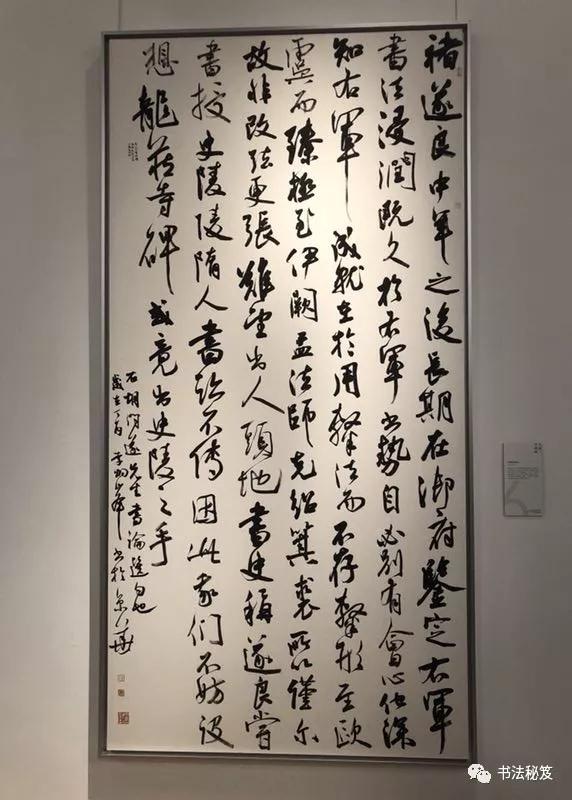 褚遂良中年之後長期在御府鑒定右軍
書法浸潤既久於右軍書勢自必別有會心他深
知右軍成就在於用隸法而不存隸形至歐
虞而臻極至伊闕孟法師克紹箕裘所以僅尔
故非改弦更張難望出人頭地書史稱遂良嘗
書授史陵陵隋人書跡不傳因此我們不妨設
想龍藏寺碑或竟出史陵之手
右胡問遂先生書論選句也
歲在丁酉李炯峰書於京華
书法秘笈